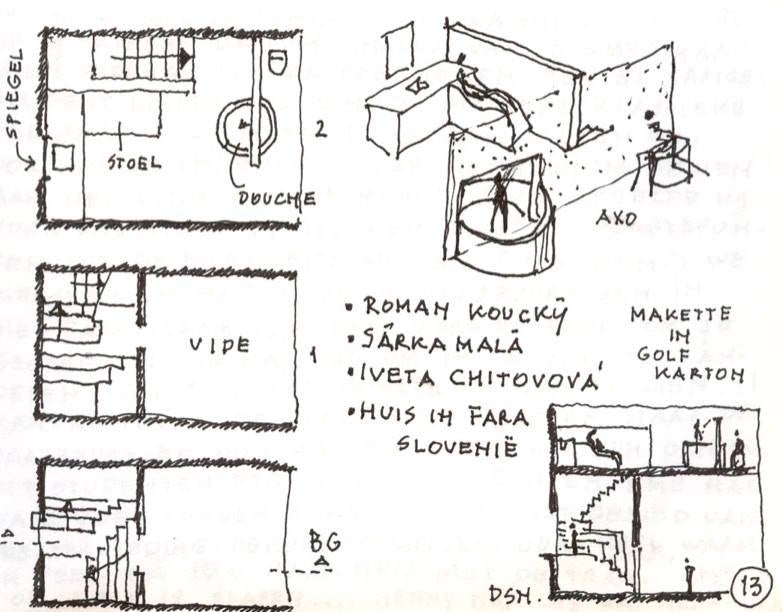 SPIEGEL
STOEL
DOUCHE
2
AXO
VIDE
1
• ROMAN KOUCKÝ
• SÂRKA MALÂ
• IVETA CHITOVOVÁ
• HUIS IN FARA
SLOVENIË
MAKETTE
IN
GOLF
KARTON
BG
A
DSN. A
13